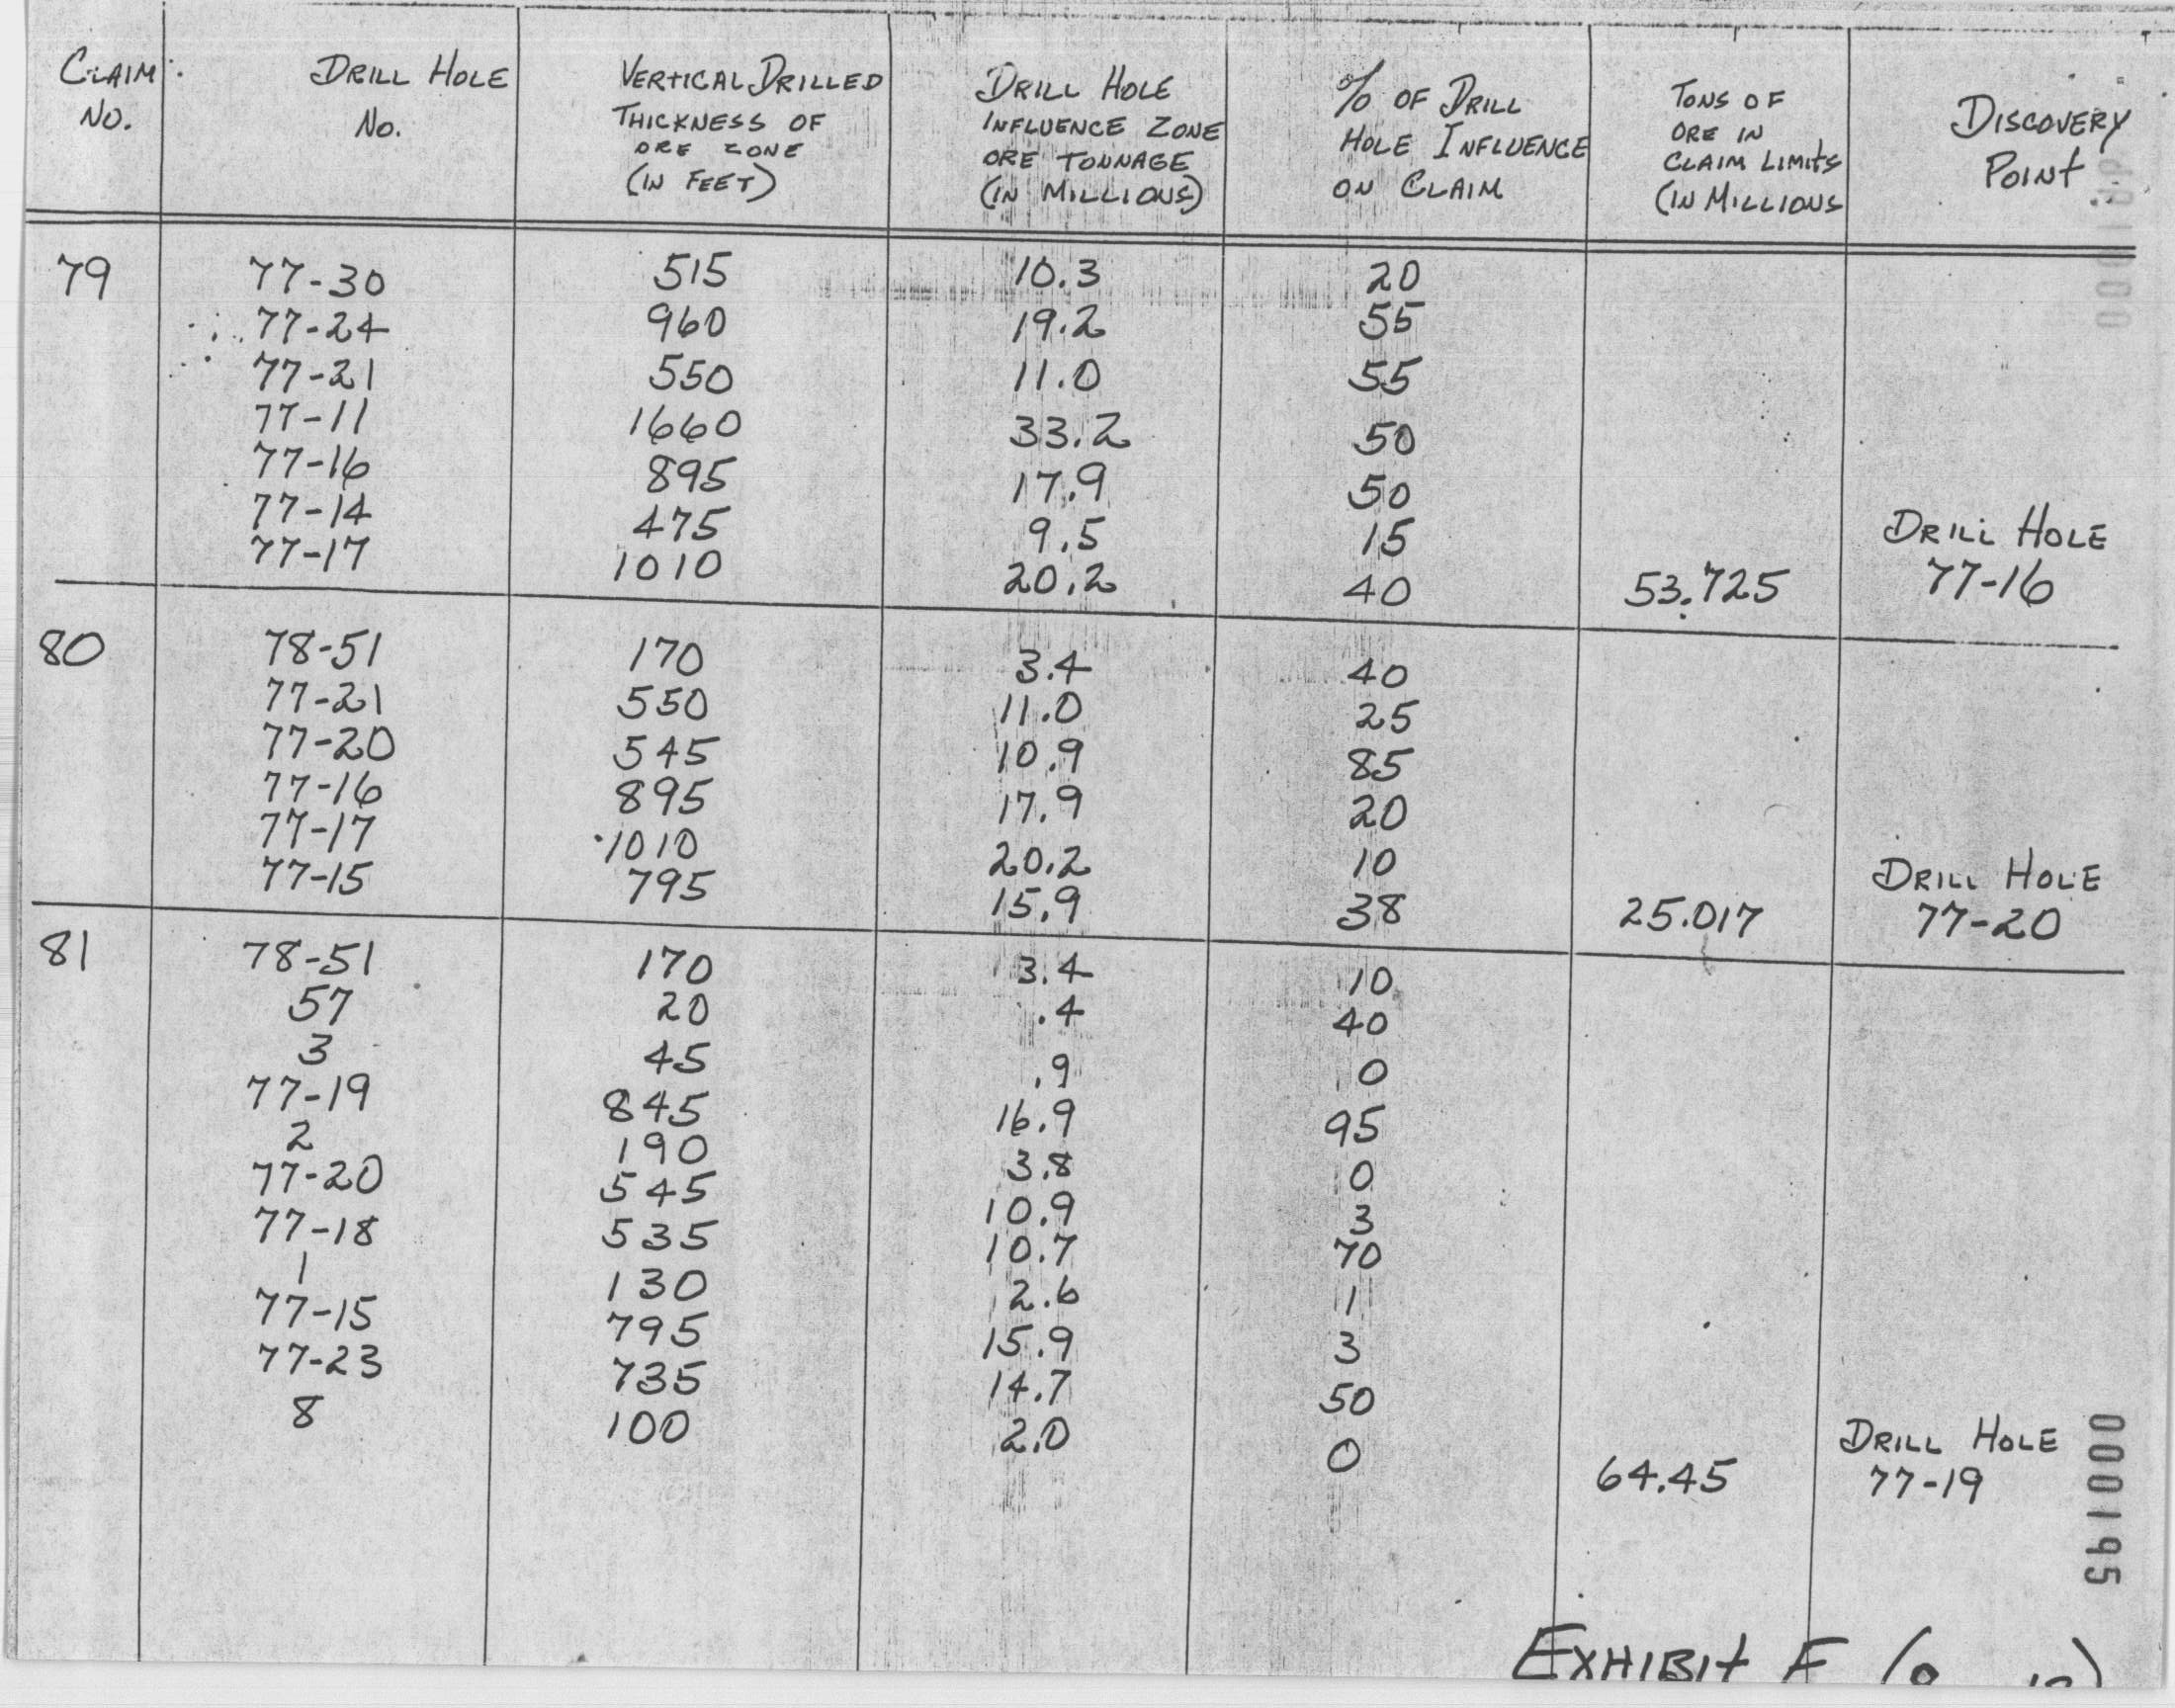 CLAIM NO. DRILL HOLE NO. VERTICAL DRILLED THICKNESS OF ORE ZONE (IN FEET) DRILL HOLE INFLUENCE ZONE ORE TONNAGE (IN MILLIONS) % OF DRILL HOLE INFLUENCE ON CLAIM TONS OF ORE IN CLAIM LIMITS (IN MILLIONS DISCOVERY POINT
79 77-30 515 10.3 20
77-24 960 19.2 55
77-21 550 11.0 55
77-11 1660 33.2 50
77-16 895 17.9 50
77-14 475 9.5 15 DRILL HOLE
77-17 1010 20.2 40 53.725 77-16
80 78-51 170 3.4 40
77-21 550 11.0 25
77-20 545 10.9 85
77-16 895 17.9 20
77-17 1010 20.2 10 DRILL HOLE
77-15 795 15.9 38 25.017 77-20
81 78-51 170 3.4 10
57 20 .4 40
3 45 .9 0
77-19 845 16.9 95
2 190 3.8 0
77-20 545 10.9 3
77-18 535 10.7 70
1 130 2.6 1
77-15 795 15.9 3
77-23 735 14.7 50
8 100 2.0 0 DRILL HOLE
64.45 77-19
000195
EXHIBIT F